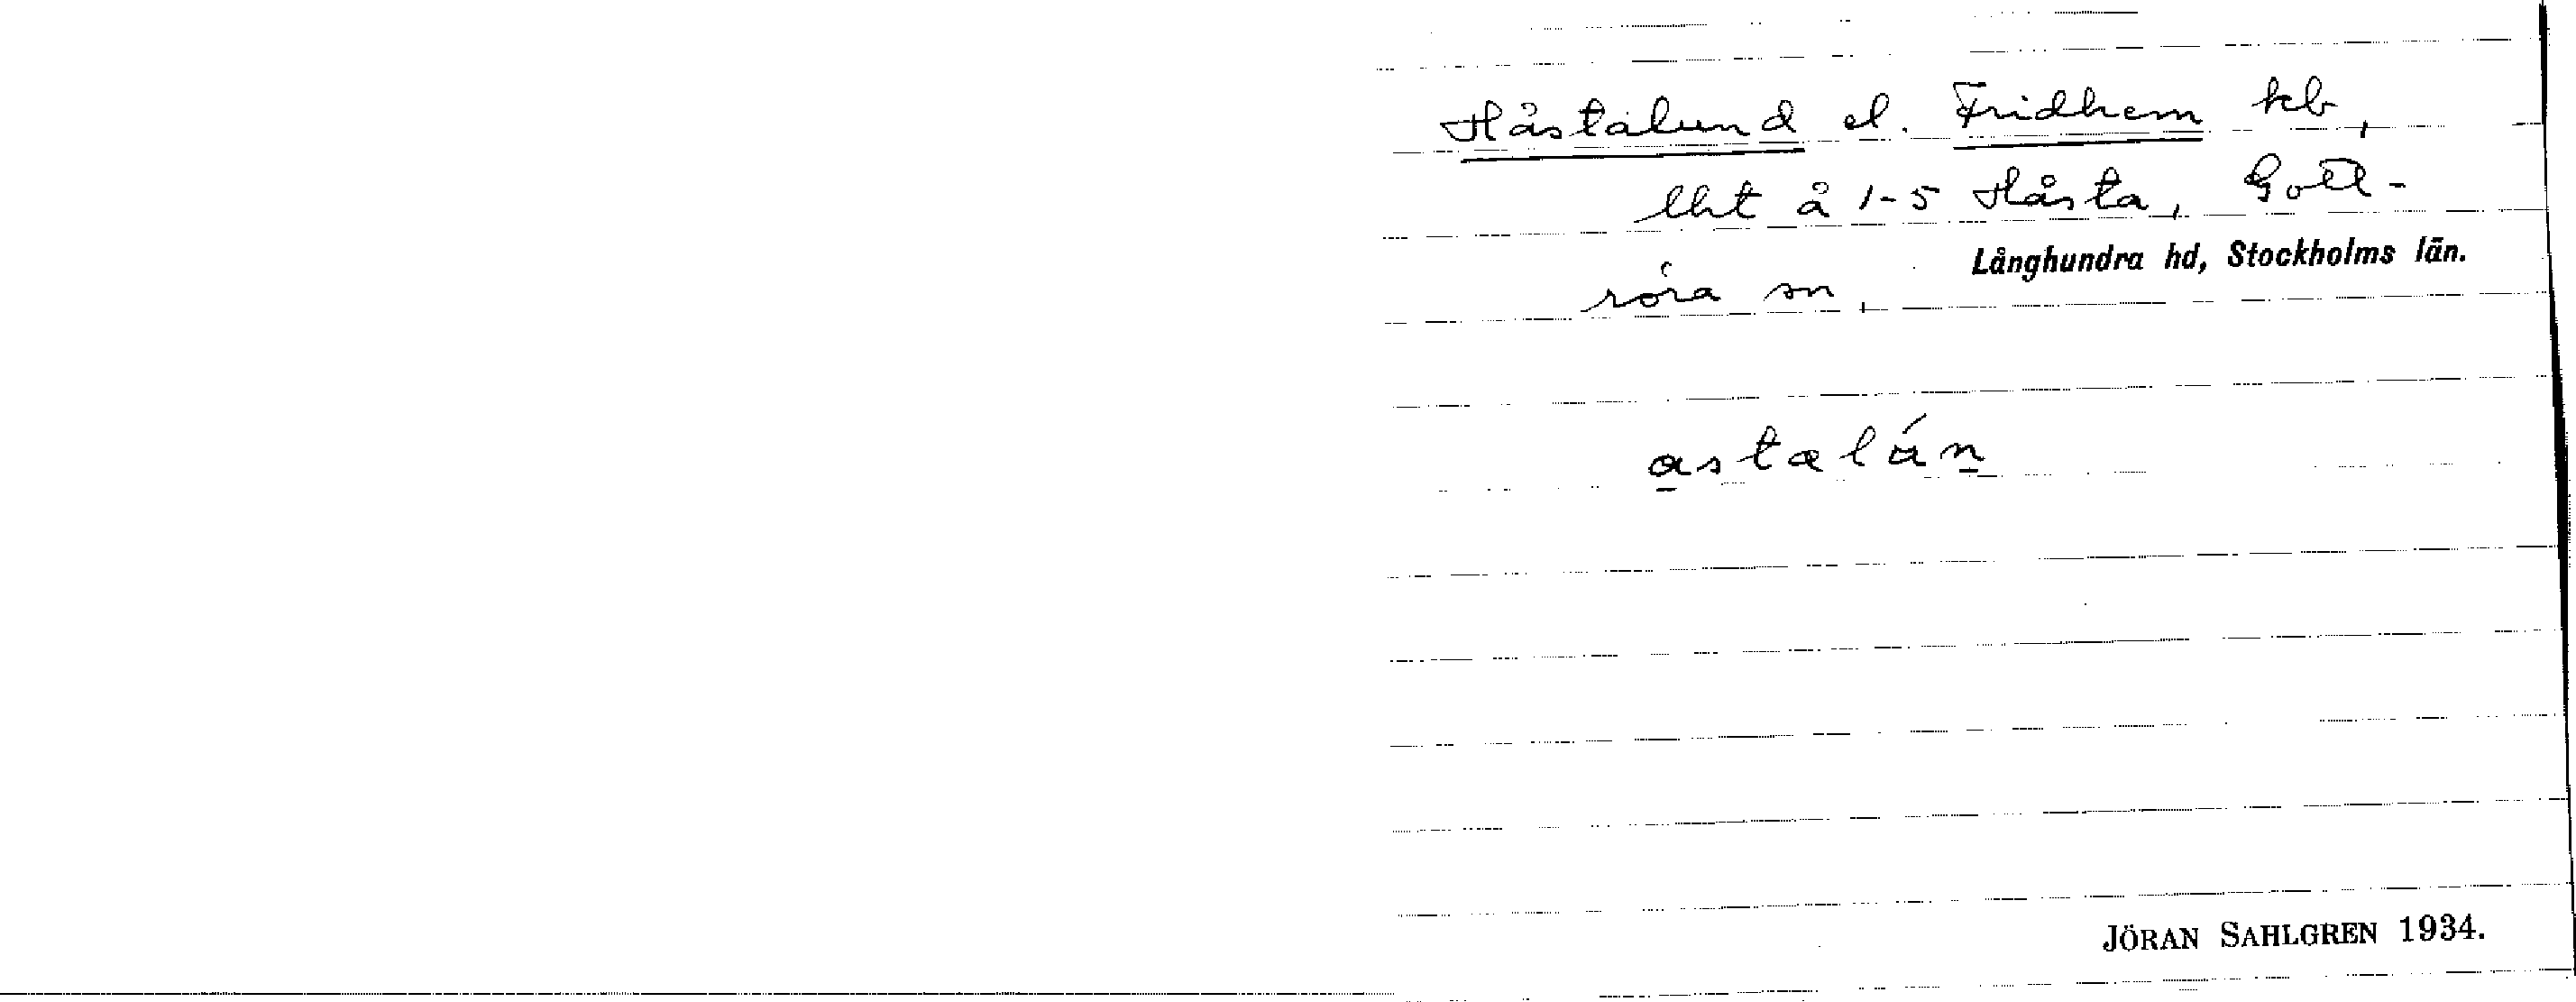 Håstalund el. Fridhem kb,
lht å 1-5 Håsta, Gott-
Långhundra hd, Stockholms län.
röra sn,
astalún
JÖRAN SAHLGREN 1934.